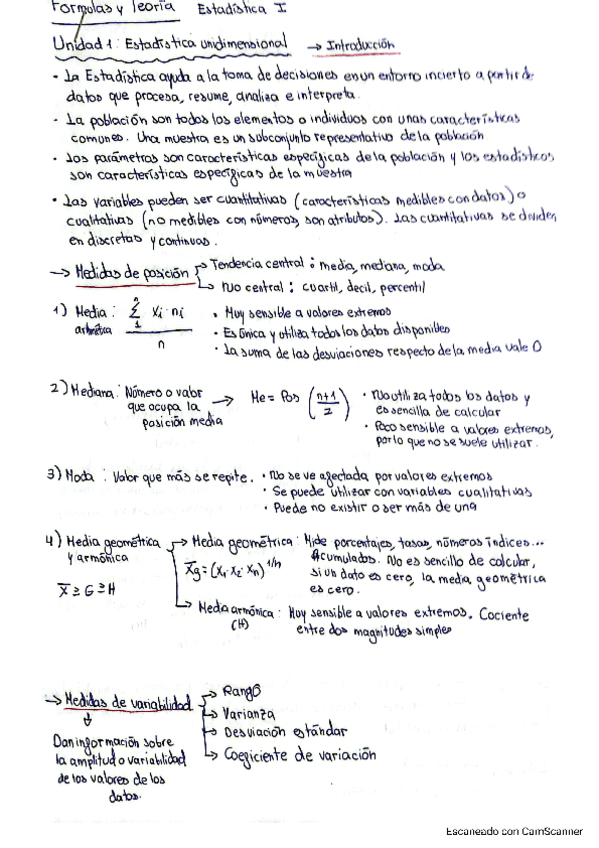 Formulas y Teoría Estadística I
Unidad 1: Estadística unidimensional → Introducción
· La Estadística ayuda a la toma de decisiones en un entorno incierto a partir de
datos que procesa, resume, analiza e interpreta.
· La población son todos los elementos o individuos con unas características
comunes. Una muestra es un subconjunto representativo de la población
· Los parámetros son características específicas de la población y los estadísticos
son características específicas de la muestra
· Las variables pueden ser cuantitativas (características medibles con datos) o
cualitativas (no medibles con números, son atributos). Las cuantitativas se dividen
en discretas y continuas.
→ Medidas de posición → Tendencia central: media, mediana, moda
→ No central: cuartil, decil, percentil
1) Media aritmética: n Σ 1 xi · ni / n
· Muy sensible a valores extremos
· Es única y utiliza todos los datos disponibles
· La suma de las desviaciones respecto de la media vale 0
2) Mediana: Número o valor
que ocupa la
posición media
→ Me = Pos (n+1/2)
· No utiliza todos los datos y
es sencilla de calcular
· Poco sensible a valores extremos,
por lo que no se suele utilizar.
3) Moda: Valor que más se repite. · No se ve afectada por valores extremos
· Se puede utilizar con variables cualitativas
· Puede no existir o ser más de una
4) Media geométrica
y armónica
X̄ ≥ G ≥ H
→ Media geométrica: Mide porcentajes, tasas, números índices...
Acumulados. No es sencillo de calcular,
si un dato es cero, la media geométrica
es cero.
X̄g = (x₁ · x₂ · xn)^1/n
→ Media armónica: Muy sensible a valores extremos. Cociente
(H) entre dos magnitudes simples
→ Medidas de variabilidad
→ Rango
→ Varianza
→ Desviación estándar
→ Coeficiente de variación
Dan información sobre
la amplitud o variabilidad
de los valores de los
datos.
Escaneado con CamScanner